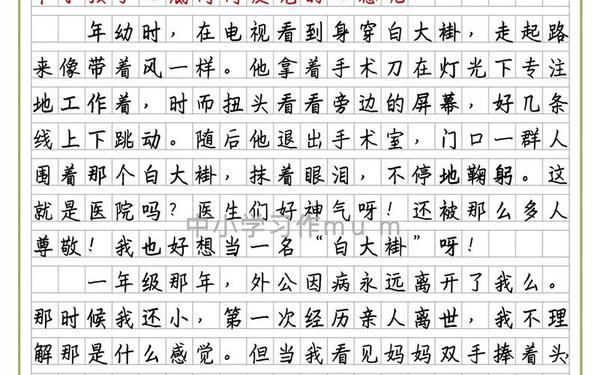 年幼时，在电视看到身穿白大褂，走起路
来像带着风一样。他拿着手术刀在灯光下专注
地工作着，时而扭头看看旁边的屏幕，好几条
线上下跳动。随后他退出手术室，门口一群人
围着那个白大褂，抹着眼泪，不停地鞠躬。这
就是医院吗？医生们好神气呀！还被那么多人
中小学习作mu m
尊敬！我也好想当一名“白大褂”呀！
一年级那年，外公因病永远离开了我么。
那时候我还小，第一次经历亲人离世，我不理
解那是什么感觉。但当我看见妈妈双手捧着头